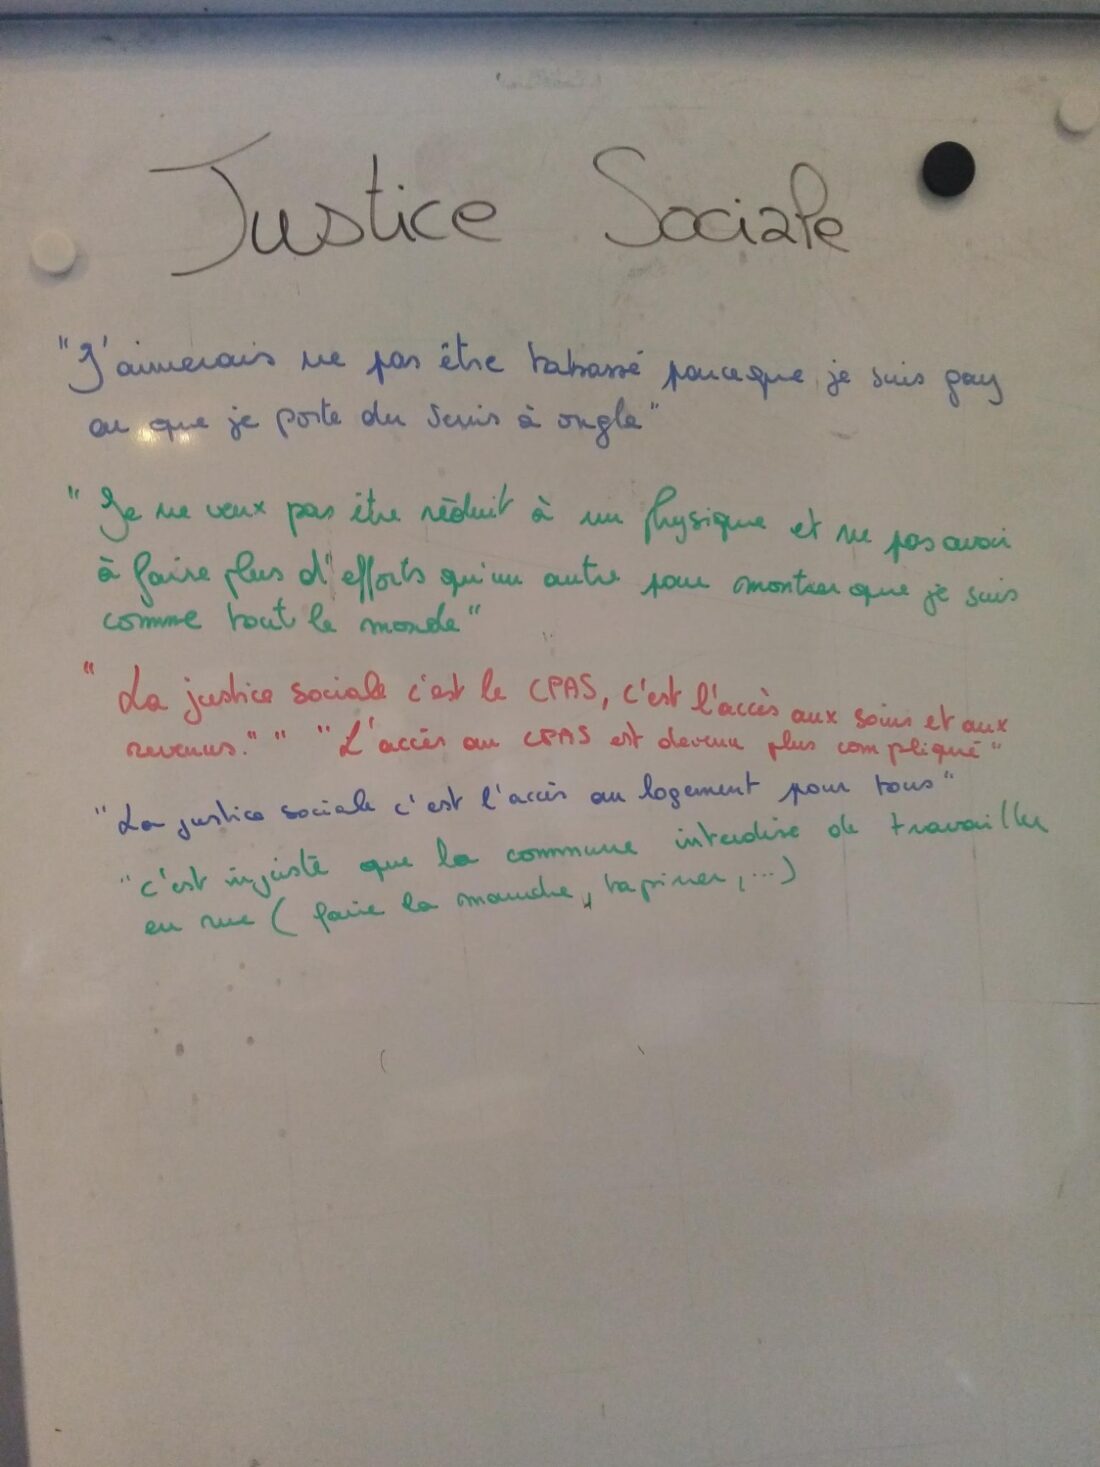 Justice Sociale
"J'aimerais ne pas être tabassé parceque je suis gay
ou que je porte du vernis à ongle"
"Je ne veux pas être réduit à un physique et ne pas avoir
à faire plus d'efforts qu'un autre pour montrer que je suis
comme tout le monde"
"La justice sociale c'est le CPAS, c'est l'accès aux soins et aux
revenus." " "L'accès au CPAS est devenu plus compliqué"
"La justice sociale c'est l'accès au logement pour tous"
"c'est injuste que la commune interdise de travailler
en rue (faire la manche, tapiner, ...)